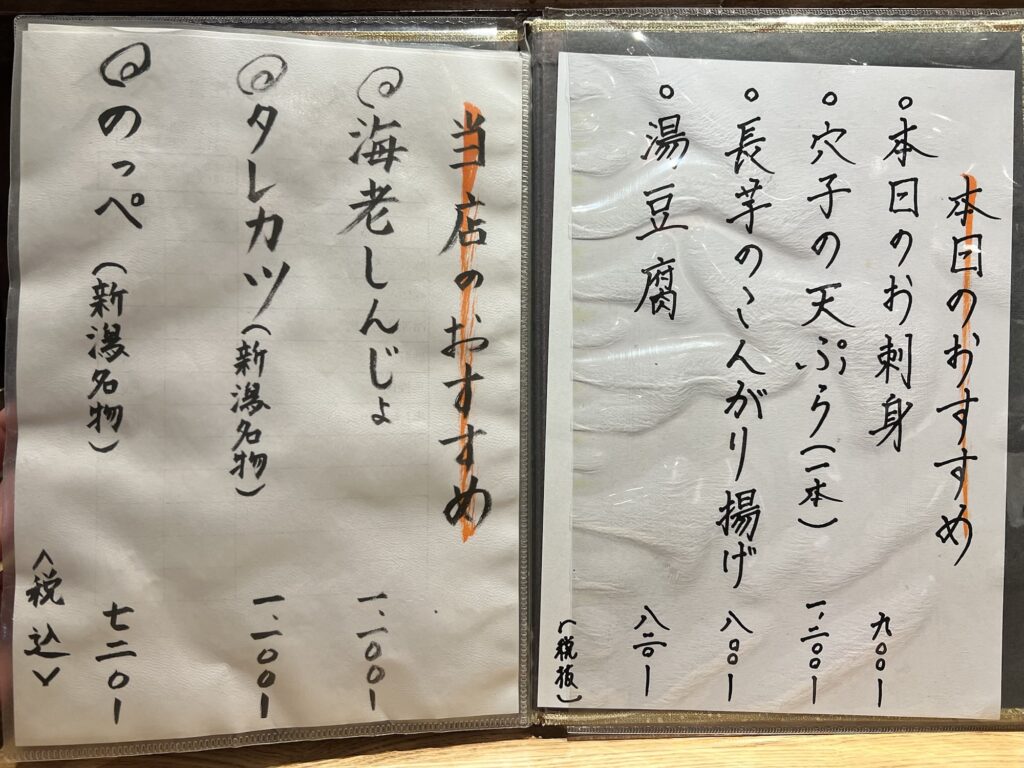 本日のおすすめ
○本日のお刺身 九〇〇ー
○穴子の天ぷら(一本)
○長芋のこんがり揚げ 八〇〇ー
○湯豆腐
(税抜)
当店のおすすめ
海老しんじょ 一、一〇〇ー
タレカツ(新潟名物) 一、一〇〇ー
のっぺ(新潟名物) 七二〇ー
<税込>